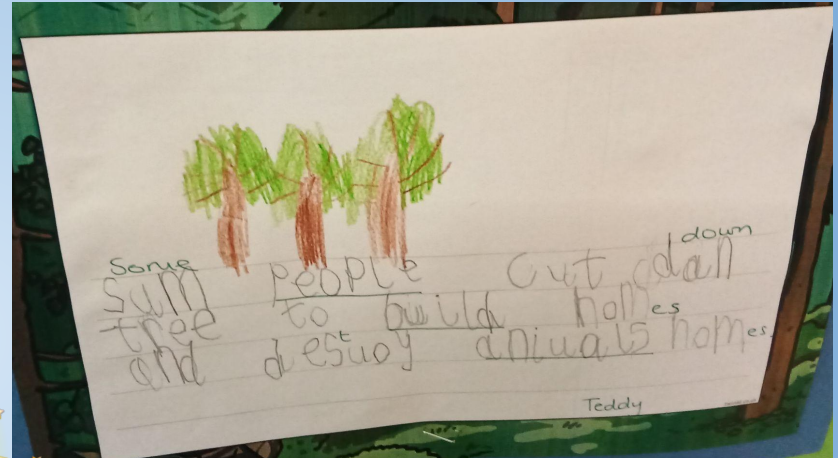 Some down
sum people cut dan
tree to build homes
and destuoy aniuals homes
Teddy